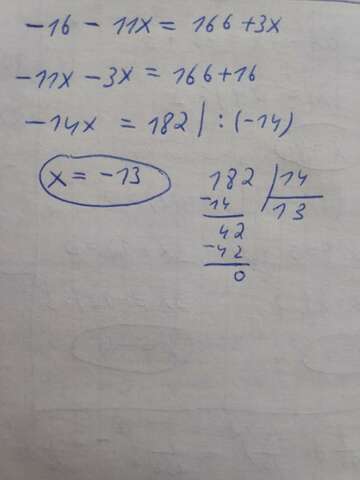 -16 - 11x = 166 + 3x
-11x - 3x = 166 + 16
-14x = 182 | : (-14)
x = -13
182 | 14
-14
13
42
-42
0